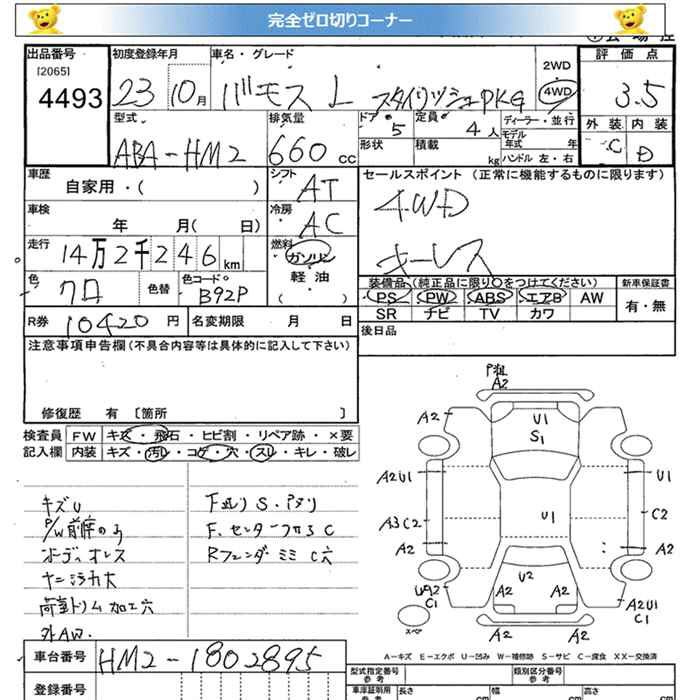 完全ゼロ切りコーナー
出品番号
[2065]
4493
初度登録年月
23 10月
車名・グレード
バモス L スタイリッシュPKG
2WD
4WD
評価点
3.5
外装 内装
C D
型式
ABA-HM2
排気量
660 cc
ドア
5
定員
4人
ディーラー・並行
モデル
年式 年
形状
積載
kg
ハンドル 左・右
車歴
自家用・( )
シフト
AT
セールスポイント(正常に機能するものに限ります)
4WD
キーレス
車検
年 月( 日)
冷房
AC
走行
14万2千246 km
燃料
ガソリン
軽油
( )
色
クロ
色替
色コード
B92P
装備品(純正品に限り〇をつけてください)
新車保証書
PS PW ABS エアB AW
SR ナビ TV カワ
有・無
R券 10420 円
名変期限 月 日
後日品
注意事項申告欄(不具合内容等は具体的に記入して下さい)
修復歴 有 [箇所 ]
検査員 FW キズ・飛石・ヒビ割・リペア跡・×要
記入欄 内装 キズ・汚レ・コゲ・穴・スレ・キレ・破レ
キズU
P/W前席のみ
ボーディオレス
ヤニ汚れ大
荷室トリム加工穴
外AW.
下廻りS・サビ
F.センターフロアC
RフェンダーミミC穴
A2
A2
U1
S1
A2U1
U1
A3C2
U1
C2
A2
A2
U2
A2
A2
C1
A2U1
C1
A2
A2
スペア
A-キズ E-エクボ U-凹み W-補修跡 S-サビ C-腐食 XX-交換済
車台番号
HM2-1802895
登録番号
型式指定番号
参考
類別区分番号
参考
車庫証明用
参考
長さ
cm
幅
cm
高さ
cm